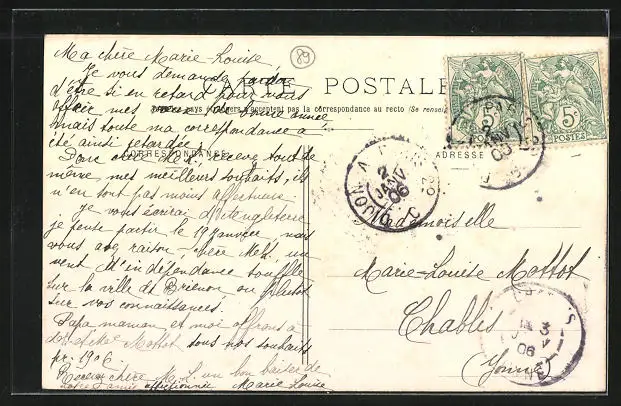 Ma chère Marie-Louise
Je vous demande pardon
d'être si en retard pour vous
offrir mes vœux de bonne année
mais toute ma correspondance a
été ainsi retardée.
Donc chère M.L. recevez tout de
même, mes meilleurs souhaits, ils
n'en sont pas moins affectueux
je vous écrirai d'Angleterre
je pense partir le 19 janvier, vous
vous avez raison chère M.L. un
vent d'indépendance souffle
sur la ville de Brienon ou plutôt
sur vos connaissances.
Papa maman et moi offrons à
Mottot tous nos souhaits
pr. 1906.
Recevez chère M.L. un bon baiser de
votre amie affectionnée Marie Louise
89
CARTE POSTALE
pays étrangers n'acceptent pas la correspondance au recto (Se renseigner
CORRESPONDANCE
ADRESSE
5c
POSTES
5c
POSTES
2
JANV
06
Mademoiselle
Marie-Louise Mottot
Chablis
(Yonne)
3
06